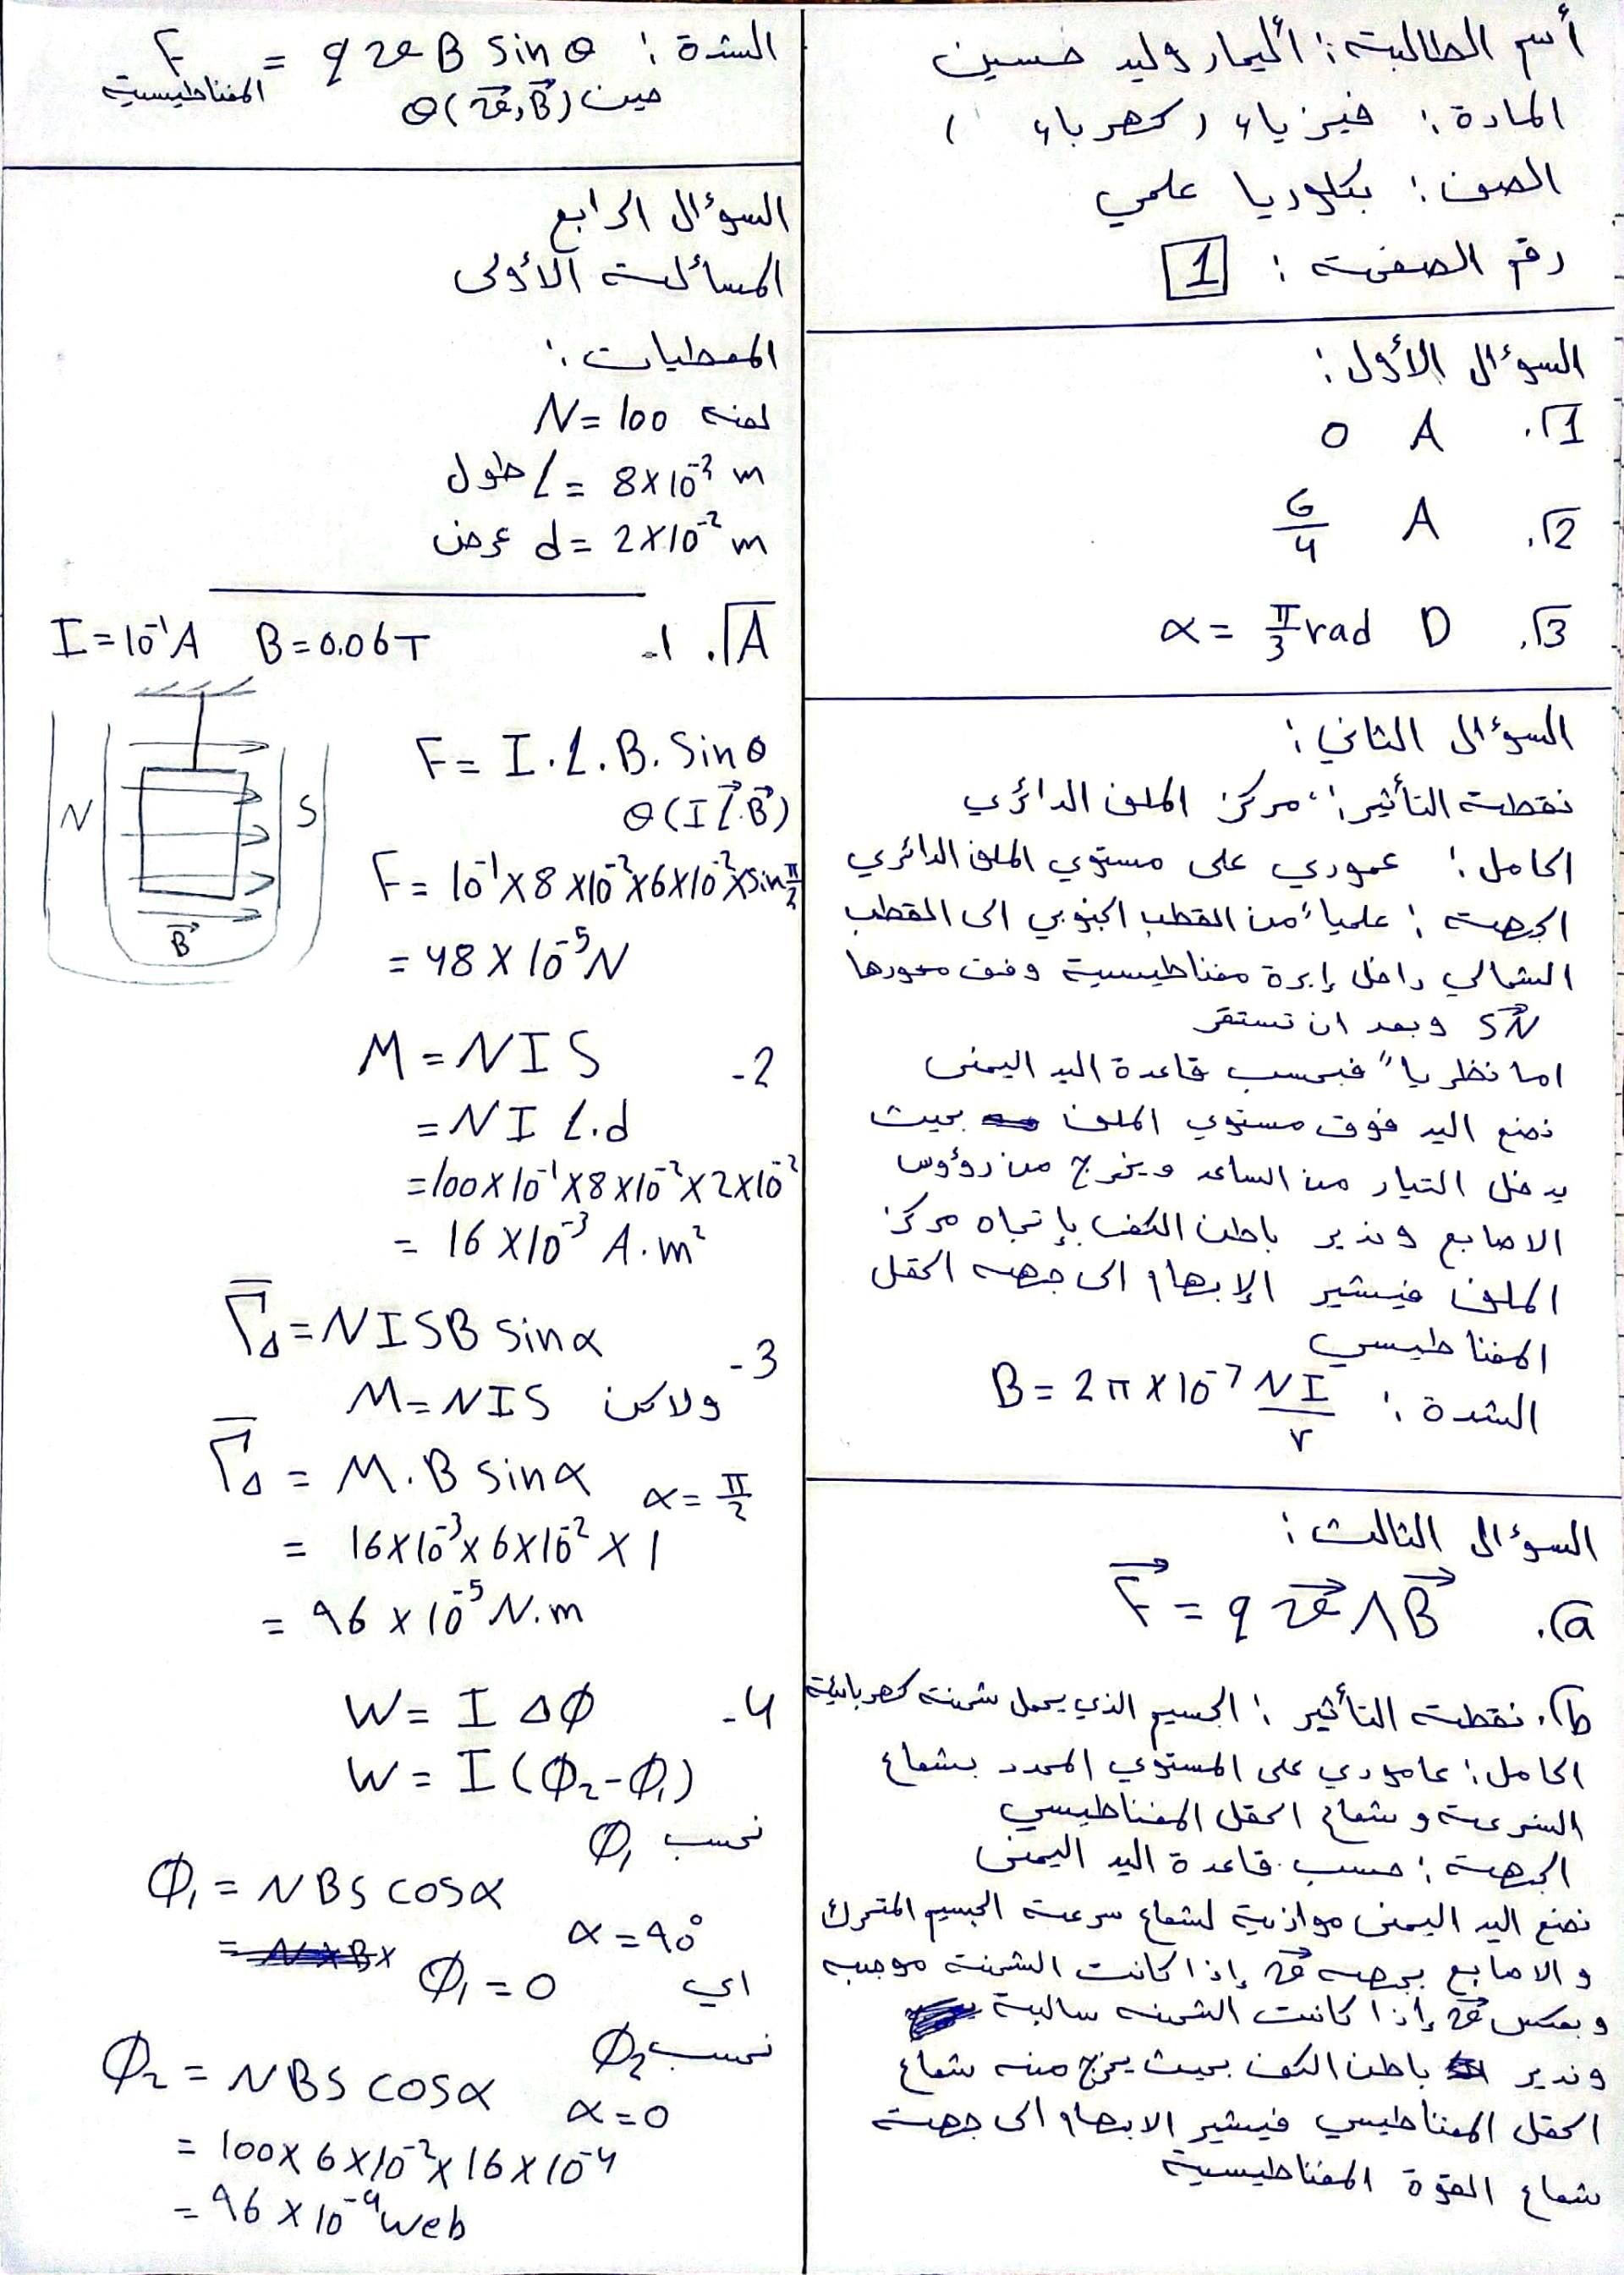 أسم الطالبة: أليمار وليد حسين
المادة: فيزياء (كهرباء)
الصف: بكلوريا علمي
رقم الصفحة: 1
السؤال الأول:
1. A 0
2. A G/4
3. D α = π/3 rad
السؤال الثاني:
نقطة التأثير: مركز الملف الدائري
الحامل: عمودي على مستوي الملف الدائري
الجهة: علمياً من القطب الجنوبي الى القطب
الشمالي داخل إبرة مغناطيسية وفق محورها
SN وبعد ان تستقر
اما نظرياً فبحسب قاعدة اليد اليمنى
نضع اليد فوق مستوي الملف بحيث
يدخل التيار من الساعد ويخرج من رؤوس
الاصابع وندير باطن الكف بإتجاه مركز
الملف فيشير الإبهام الى جهه الحقل
المغناطيسي
الشدة: B = 2π×10⁻⁷ NI/r
السؤال الثالث:
a. F⃗ = q v⃗ ∧ B⃗
b. نقطة التأثير: الجسيم الذي يحمل شحنة كهربائية
الحامل: عامودي على المستوي المحدد بشعاع
السرعة و شعاع الحقل المغناطيسي
الجهة: حسب قاعدة اليد اليمنى
نضع اليد اليمنى موازية لشعاع سرعة الجسيم المتحرك
والاصابع بجهه v⃗ إذا كانت الشحنة موجبه
وبعكس v⃗ إذا كانت الشحنه سالبة
وندير باطن الكف بحيث يخرج منه شعاع
الحقل المغناطيسي فيشير الابهام الى جهة
شعاع القوة المغناطيسية
الشدة: F المغناطيسية = q v B sin θ
حيث θ(v⃗,B⃗)
السؤال الرابع
المسألة الأولى
المعطيات:
N = 100 لفة
طول L = 8×10⁻² m
عرض d = 2×10⁻² m
A. 1- B = 0.06T I = 10⁻¹A
F = I.L.B. Sin θ
θ(I L⃗.B⃗)
F = 10⁻¹×8×10⁻²×6×10⁻²×sin π/2
= 48×10⁻⁵N
N S
B⃗
2- M = NIS
= NI L.d
= 100×10⁻¹×8×10⁻²×2×10⁻²
= 16×10⁻³ A.m²
3- Γ̅Δ = NISB sin α
ولاكن M = NIS
Γ̅Δ = M.B sin α α = π/2
= 16×10⁻³×6×10⁻²×1
= 96×10⁻⁵ N.m
4- W = I ΔΦ
W = I (Φ₂-Φ₁)
نحسب Φ₁
Φ₁ = NBS cos α
α = 90°
اي Φ₁ = 0
نحسب Φ₂
Φ₂ = NBS cos α
α = 0
= 100×6×10⁻²×16×10⁻⁴
= 96×10⁻⁴ web